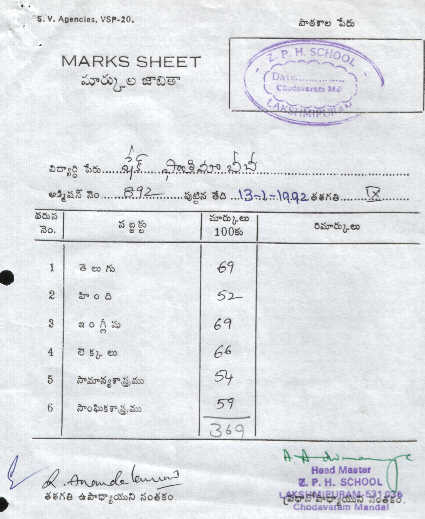 S. V. Agencies, VSP-20.
పాఠశాల పేరు
MARKS SHEET
మార్కుల జాబితా
Z. P. H. SCHOOL
Date:
Chodavaram Md
LAKSHMIPURAM
విద్యార్థి పేరు షేక్ ఫాతిమా బీబీ
అడ్మిషన్ నెం 892 పుట్టిన తేది 13-1-1992 తరగతి IX
వరుస నెం. సబ్జెక్టు మార్కులు 100కు రిమార్కులు
1 తెలుగు 69
2 హింది 52
3 ఇంగ్లీషు 69
4 లెక్కలు 66
5 సామాన్యశాస్త్రము 54
6 సాంఘికశాస్త్రము 59
369
Head Master
Z. P. H. SCHOOL
LAKSHMIPURAM-531036
Chodavaram Mandal
తరగతి ఉపాధ్యాయుని సంతకం
ప్రధానోపాధ్యాయుని సంతకం.